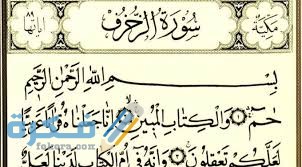 مكية سُورَةُ الزُّخْرُفِ آياتها ٨٩
بِسْمِ اللَّهِ الرَّحْمَٰنِ الرَّحِيمِ
حمٓ ۝ وَالْكِتَابِ الْمُبِينِ ۝ إِنَّا جَعَلْنَاهُ قُرْآنًا
لَعَلَّكُمْ تَعْقِلُونَ ۝ وَإِنَّهُ فِي أُمِّ الْكِتَابِ لَدَيْنَا لَعَلِيٌّ
فكرة